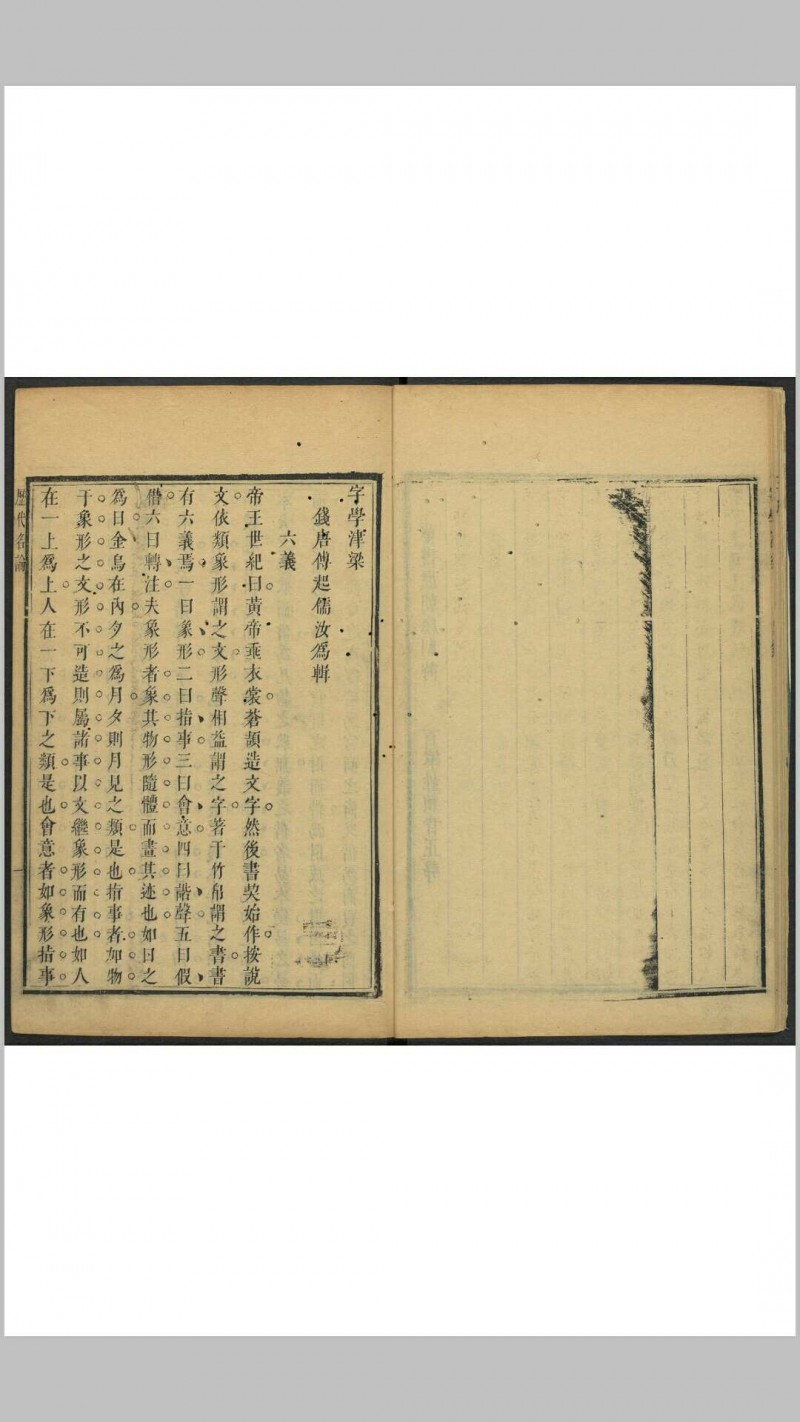 字學津梁
錢唐傅起儒汝爲輯
六義
帝王世紀曰黃帝垂衣裳蒼頡造文字然後書契始作按說
文依類象形謂之文形聲相益謂之字著于竹帛謂之書書
有六義焉一曰象形二曰指事三曰會意四曰諧聲五曰假
借六曰轉注夫象形者象其物形隨體而畫其迹也如日之
爲日金烏在內夕之爲月夕則月見之類是也指事者如物
于象形之文形不可造則屬諸事以文繼象形而有也如人
在一上爲上人在一下爲下之類是也會意者如象形指事
歷代名論
一